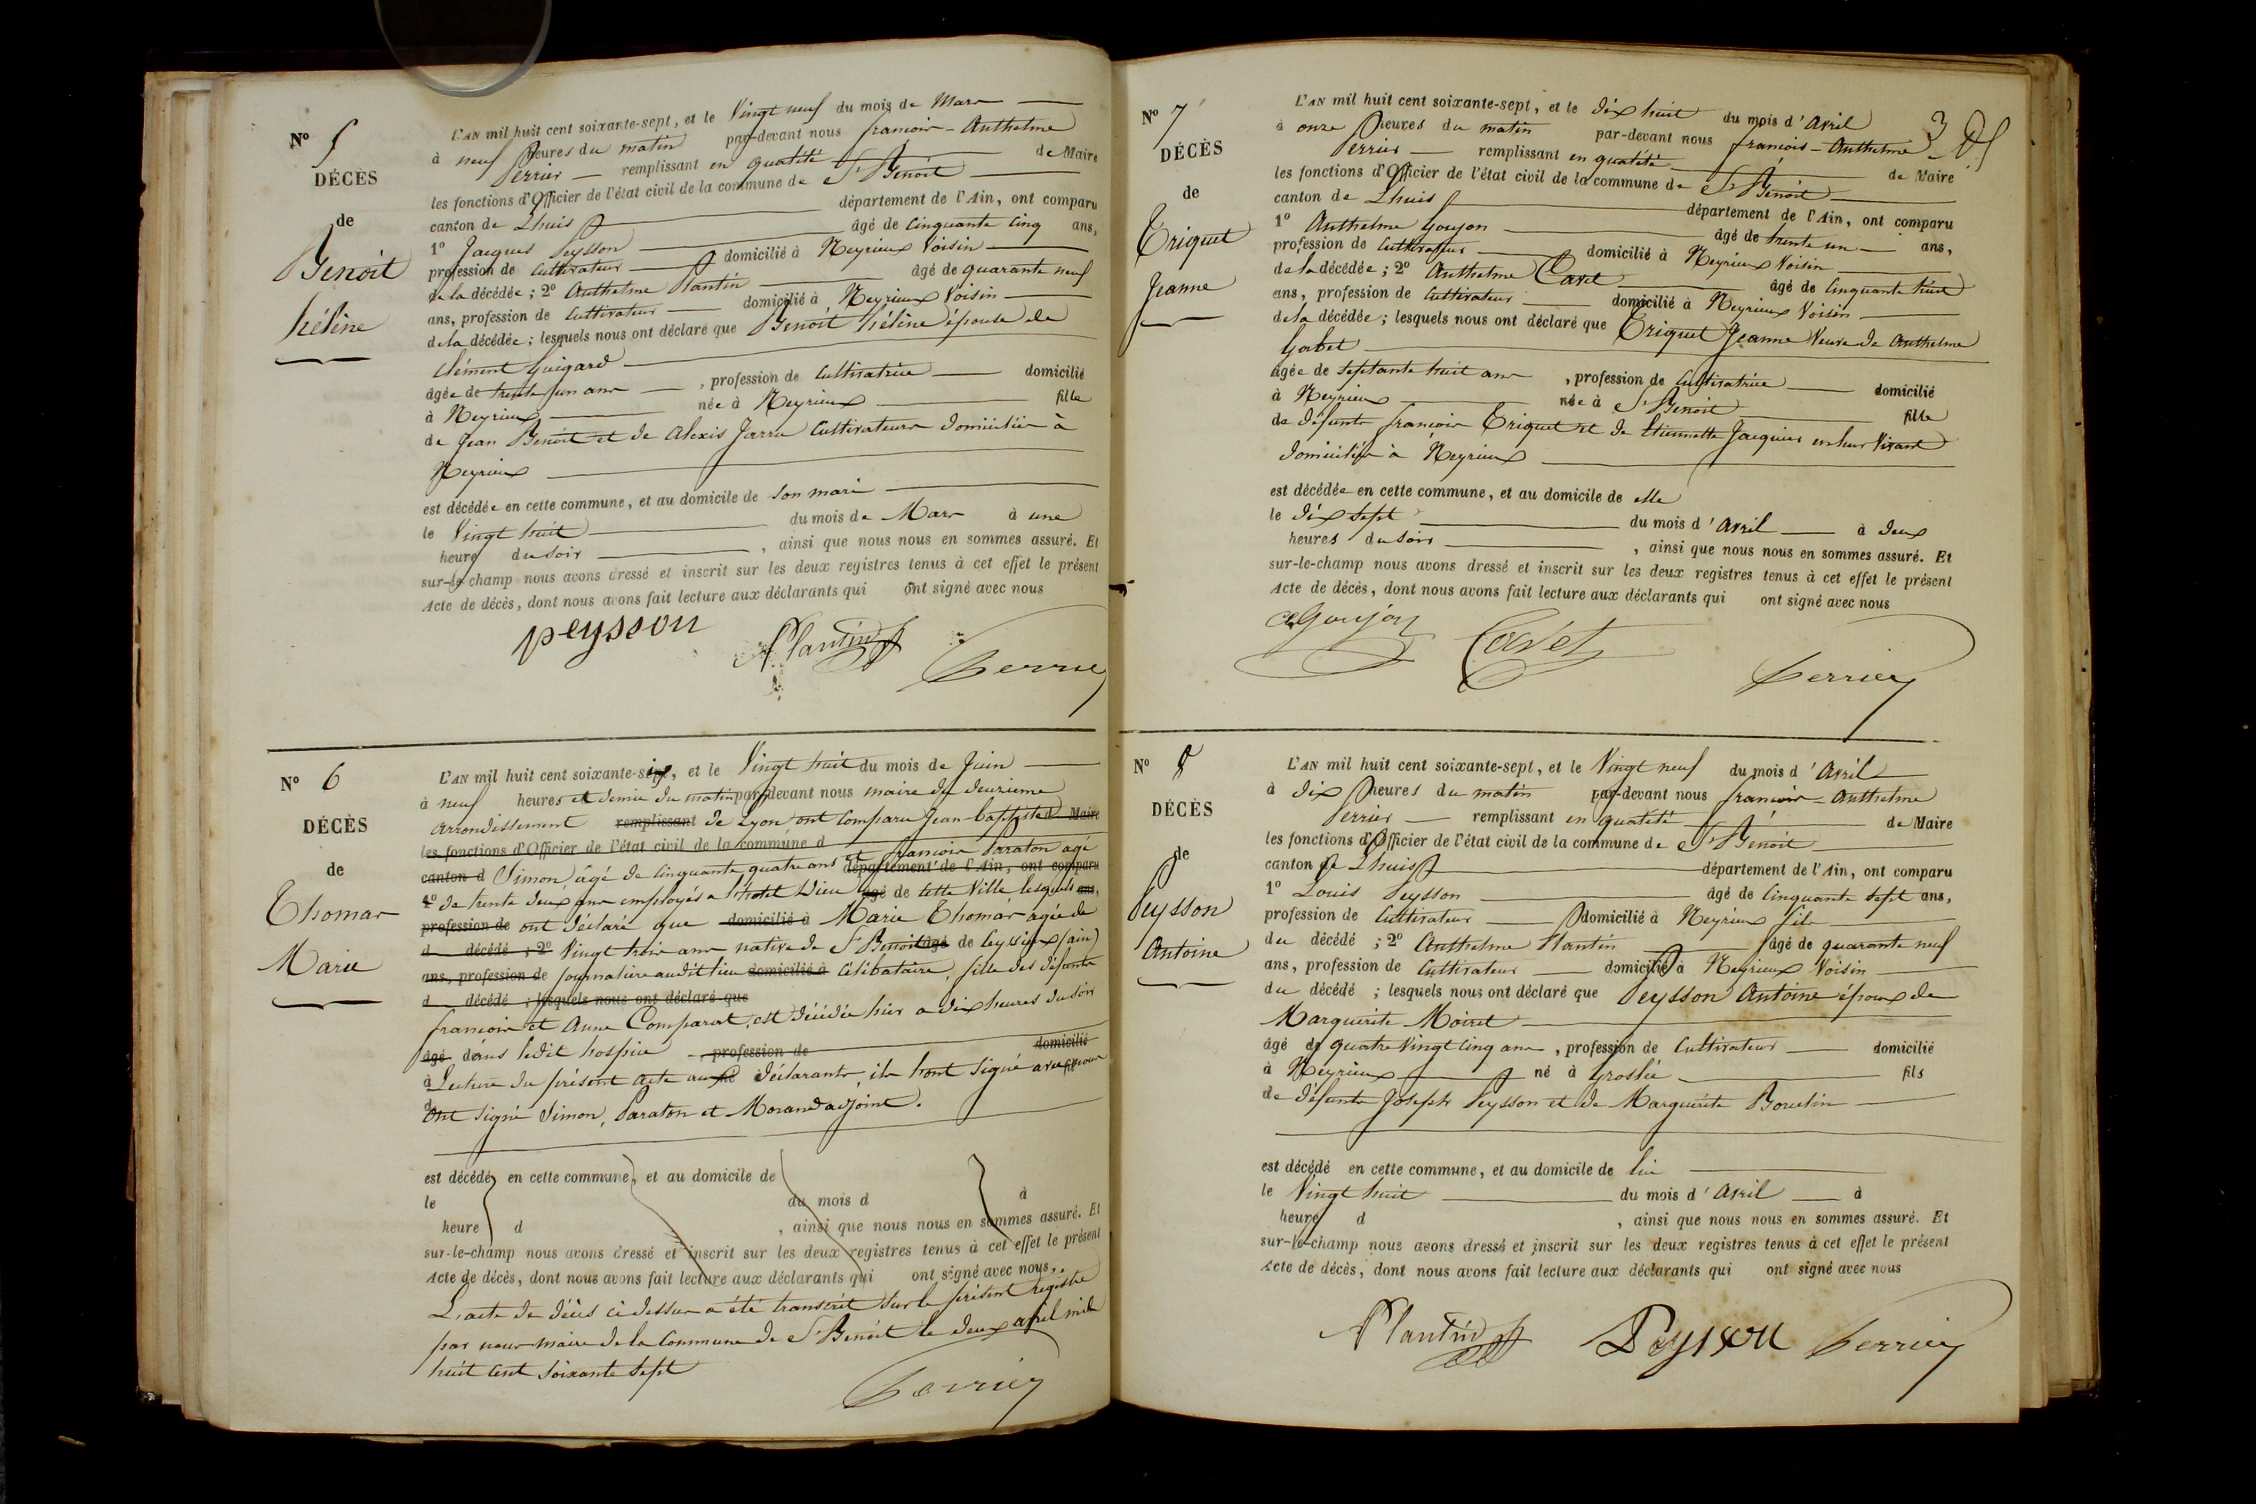 N° 5
DÉCÈS
de
Benoit
hélène
L'AN mil huit cent soixante-sept, et le Vingt neuf du mois de Mars
à neuf heures du matin par-devant nous françois-Anthelme
Perrier remplissant en qualité de Maire
les fonctions d'Officier de l'état civil de la commune de St Benoit
canton de Lhuis département de l'Ain, ont comparu
1° Jacques Peysson âgé de Cinquante cinq ans,
profession de Cultivateur domicilié à Neyrieux Voisin
de la décédée ; 2° Anthelme Plantin âgé de quarante neuf
ans, profession de Cultivateur domicilié à Neyrieux Voisin
de la décédée ; lesquels nous ont déclaré que Benoit hélène épouse de
Clément Guigard
âgée de trente un ans , profession de Cultivatrice domicilié
à Neyrieux née à Neyrieux fille
de Jean Benoit et de Alexis Jarru Cultivateurs domiciliés à
Neyrieux
est décédée en cette commune, et au domicile de son mari
le Vingt huit du mois de Mars à une
heure du soir , ainsi que nous nous en sommes assuré. Et
sur-le-champ nous avons dressé et inscrit sur les deux registres tenus à cet effet le présent
Acte de décès, dont nous avons fait lecture aux déclarants qui ont signé avec nous
peysson APlantin Perrier
N° 6
DÉCÈS
de
Thomas
Marie
L'AN mil huit cent soixante-six, et le Vingt huit du mois de Juin
à neuf heures et demie du matin par-devant nous maire du deuxième
arrondissement remplissant de Lyon ont Comparu Jean-baptiste d Maire
les fonctions d'Officier de l'état civil de la commune d
canton d Simon âgé de Cinquante quatre ans et françois Paraton âgé département de l'Ain, ont comparu
1° de trente deux ans employés à l'hotel Dieu âgé de cette Ville lesquels ans,
profession de ont déclaré que domicilié à Marie Thomas âgée de
d décédé ; 2° Vingt trois ans native de St Benoit âgé de Ceyssieux (ain)
ans, profession de journalière audit lieu domicilié à Célibataire, fille des défunts
d décédé ; lesquels nous ont déclaré que
françois et Anne Comparat, est décédée hier a dix heures du soir
âgé dans ledit hospice , profession de domicilié
à Lecture du présent acte aux né déclarants, ils l'ont signé avec nous
Ont signé Simon, Paraton et Morand adjoint.
est décédé en cette commune, et au domicile de
le du mois d à
heure d , ainsi que nous nous en sommes assuré. Et
sur-le-champ nous avons dressé et inscrit sur les deux registres tenus à cet effet le présent
Acte de décès, dont nous avons fait lecture aux déclarants qui ont signé avec nous.
L'acte de décès ci dessus a été transcrit sur le présent registre
par nous maire de la Commune de St Benoit le deux april mil
huit cent soixante sept
Perrier
N° 7
DÉCÈS
de
Triquet
Jeanne
3
L'AN mil huit cent soixante-sept, et le dix huit du mois d'Avril
à onze heures du matin par-devant nous françois-Anthelme
Perrier remplissant en qualité de Maire
les fonctions d'Officier de l'état civil de la commune de St Benoit
canton de Lhuis département de l'Ain, ont comparu
1° Anthelme Goujon âgé de trente un ans,
profession de Cultivateur domicilié à Neyrieux Voisin
de la décédée ; 2° Anthelme Cavet âgé de Cinquante huit
ans, profession de Cultivateur domicilié à Neyrieux Voisin
de la décédée ; lesquels nous ont déclaré que Triquet Jeanne Veuve de Anthelme
Gobet
âgée de septante huit ans , profession de Cultivatrice domicilié
à Neyrieux née à St Benoit fille
de défunts françois Triquet et de Etiennette Jacquier en leur Vivant
domiciliés à Neyrieux
est décédée en cette commune, et au domicile de elle
le dix sept du mois d'Avril à deux
heures du soir , ainsi que nous nous en sommes assuré. Et
sur-le-champ nous avons dressé et inscrit sur les deux registres tenus à cet effet le présent
Acte de décès, dont nous avons fait lecture aux déclarants qui ont signé avec nous
Goujon Cavet Perrier
N° 8
DÉCÈS
de
Peysson
Antoine
L'AN mil huit cent soixante-sept, et le Vingt neuf du mois d'Avril
à dix heures du matin par-devant nous françois-Anthelme
Perrier remplissant en qualité de Maire
les fonctions d'Officier de l'état civil de la commune de St Benoit
canton de Lhuis département de l'Ain, ont comparu
1° Louis Peysson âgé de Cinquante sept ans,
profession de Cultivateur domicilié à Neyrieux fils
du décédé ; 2° Anthelme Plantin âgé de quarante neuf
ans, profession de Cultivateur domicilié à Neyrieux Voisin
du décédé ; lesquels nous ont déclaré que Peysson Antoine époux de
Marguerite Moiret
âgé de quatre Vingt Cinq ans , profession de Cultivateur domicilié
à Neyrieux né à Groslée fils
de défunts Joseph Peysson et de Marguerite Bourlin
est décédé en cette commune, et au domicile de lui
le Vingt huit du mois d'Avril à
heure d , ainsi que nous nous en sommes assuré. Et
sur-le-champ nous avons dressé et inscrit sur les deux registres tenus à cet effet le présent
Acte de décès, dont nous avons fait lecture aux déclarants qui ont signé avec nous
APlantin Peysson Perrier